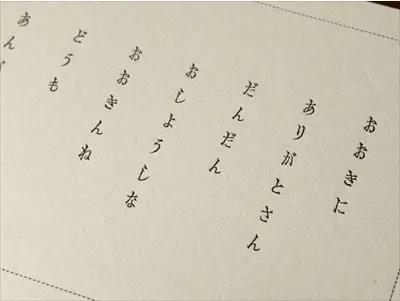 おおきに
ありがとさん
だんだん
おしょうしな
おおきんね
どうも
あん